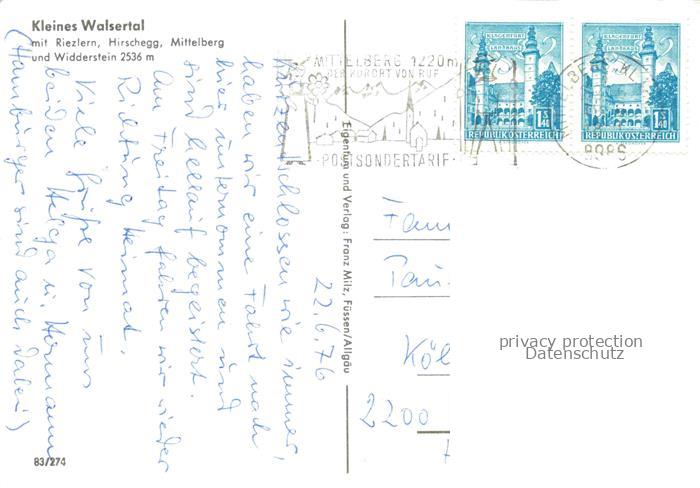 Kleines Walsertal
mit Riezlern, Hirschegg, Mittelberg
und Widderstein 2536 m
22.6.76
Kurzentschlossen wie immer,
haben wir eine Fahrt nach
hier unternommen und
sind hellauf begeistert.
Am Freitag fahren wir wieder
Richtung Heimat.
Viele Grüße von uns
beiden Helga u. Hermann
(Hamburger sind auch dabei)
83/274
Eigentum und Verlag: Franz Milz, Füssen/Allgäu
MITTELBERG 1220m
DER KURORT VON RUF
POSTSONDERTARIF
KLAGENFURT
LANDHAUS
REPUBLIK ÖSTERREICH
KLAGENFURT
LANDHAUS
REPUBLIK ÖSTERREICH
Fam
Pau
Köl
2200
privacy protection
Datenschutz